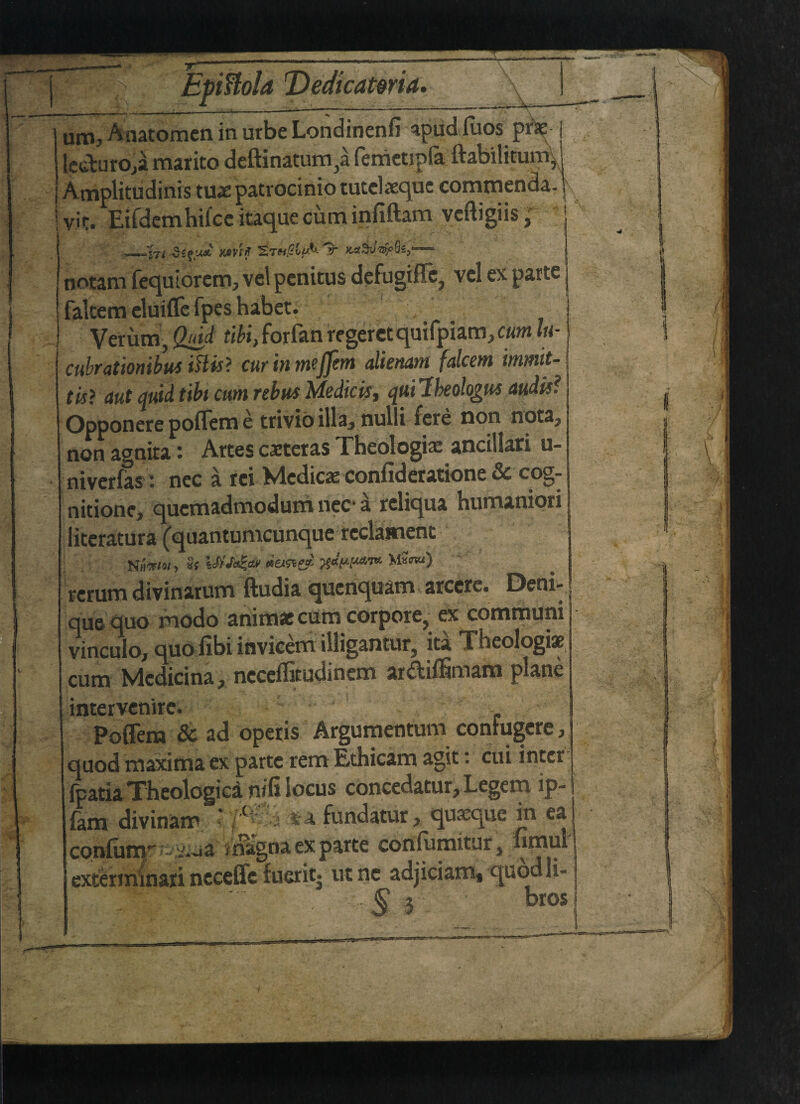 Epistola Dedicatoria.
um, Anatomen in urbe Londinensi apud suos præ-
lecturo, à marito destinatum, à semetipsa stabilitum,
Amplitudinis tuæ patrocinio tutelæque commenda-
vit. Eisdem hisce itaque cùm insistam vestigiis,
notam sequiorem, vel penitus defugisse, vel ex parte
saltem eluisse spes habet.
Verùm, Quid tibi, forsan regeret quispiam, cum lu-
cubrationibus istis? cur in messem alienam falcem immit-
tis? aut quid tibi cum rebus Medicis, qui Theologus audis?
Opponere possem è trivio illa, nulli ferè non nota,
non agnita: Artes cæteras Theologiæ ancillari u-
niversas: nec à rei Medicæ consideratione & cog-
nitione, quemadmodum nec à reliqua humaniori
literatura (quantumcunque reclament
rerum divinarum studia quenquam arcere. Deni-
que quo modo animæ cum corpore, ex communi
vinculo, quo sibi invicèm illigantur, ità Theologiæ
cum Medicina, necessitudinem arctissimam planè
intervenire.
Possem & ad operis Argumentum confugere,
quod maxima ex parte rem Ethicam agit: cui inter
spatia Theologicà nisi locus concedatur, Legem ip-
sam divinam fundatur, quæque in ea
magna ex parte consumitur, simul
exterminari necesse fuerit; ut ne adjiciam, quòd li-
§ 3 bros